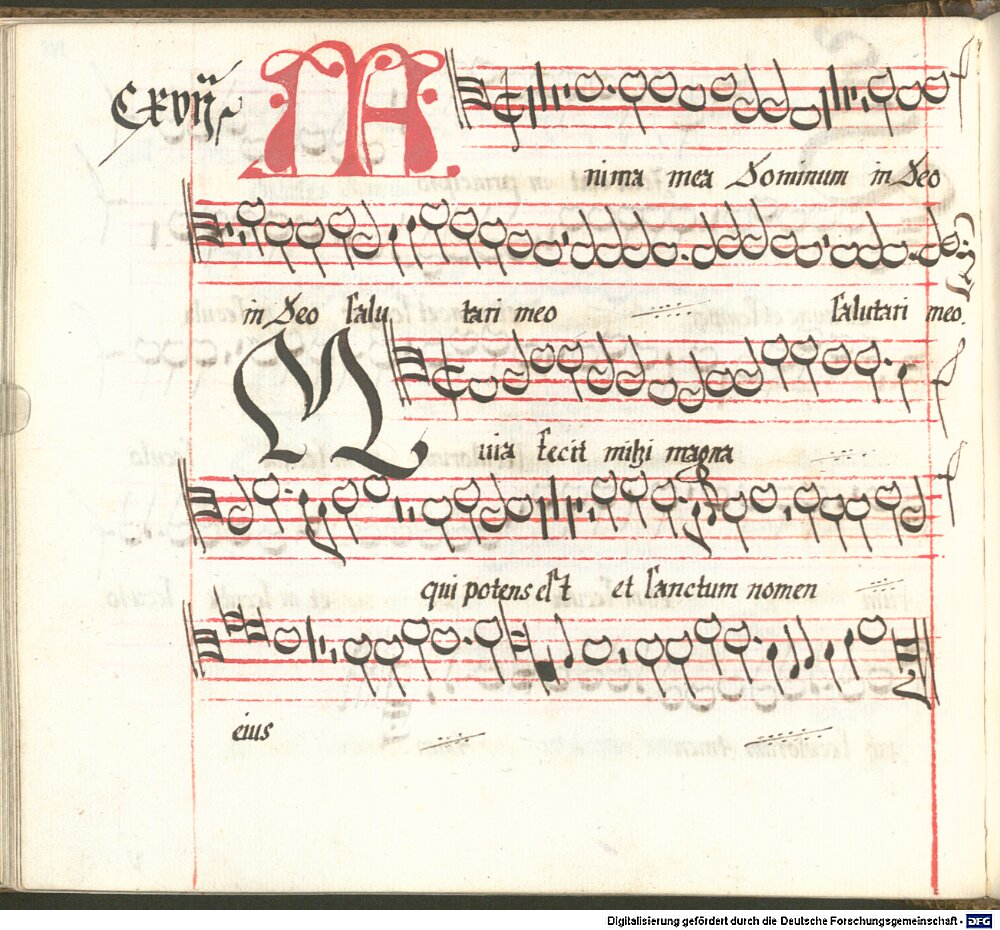 CXVII
A
nima mea Dominum in Deo
in Deo salu tari meo salutari meo.
Q
uia fecit mihi magna
qui potens est et sanctum nomen
eius
Digitalisierung gefördert durch die Deutsche Forschungsgemeinschaft - DFG